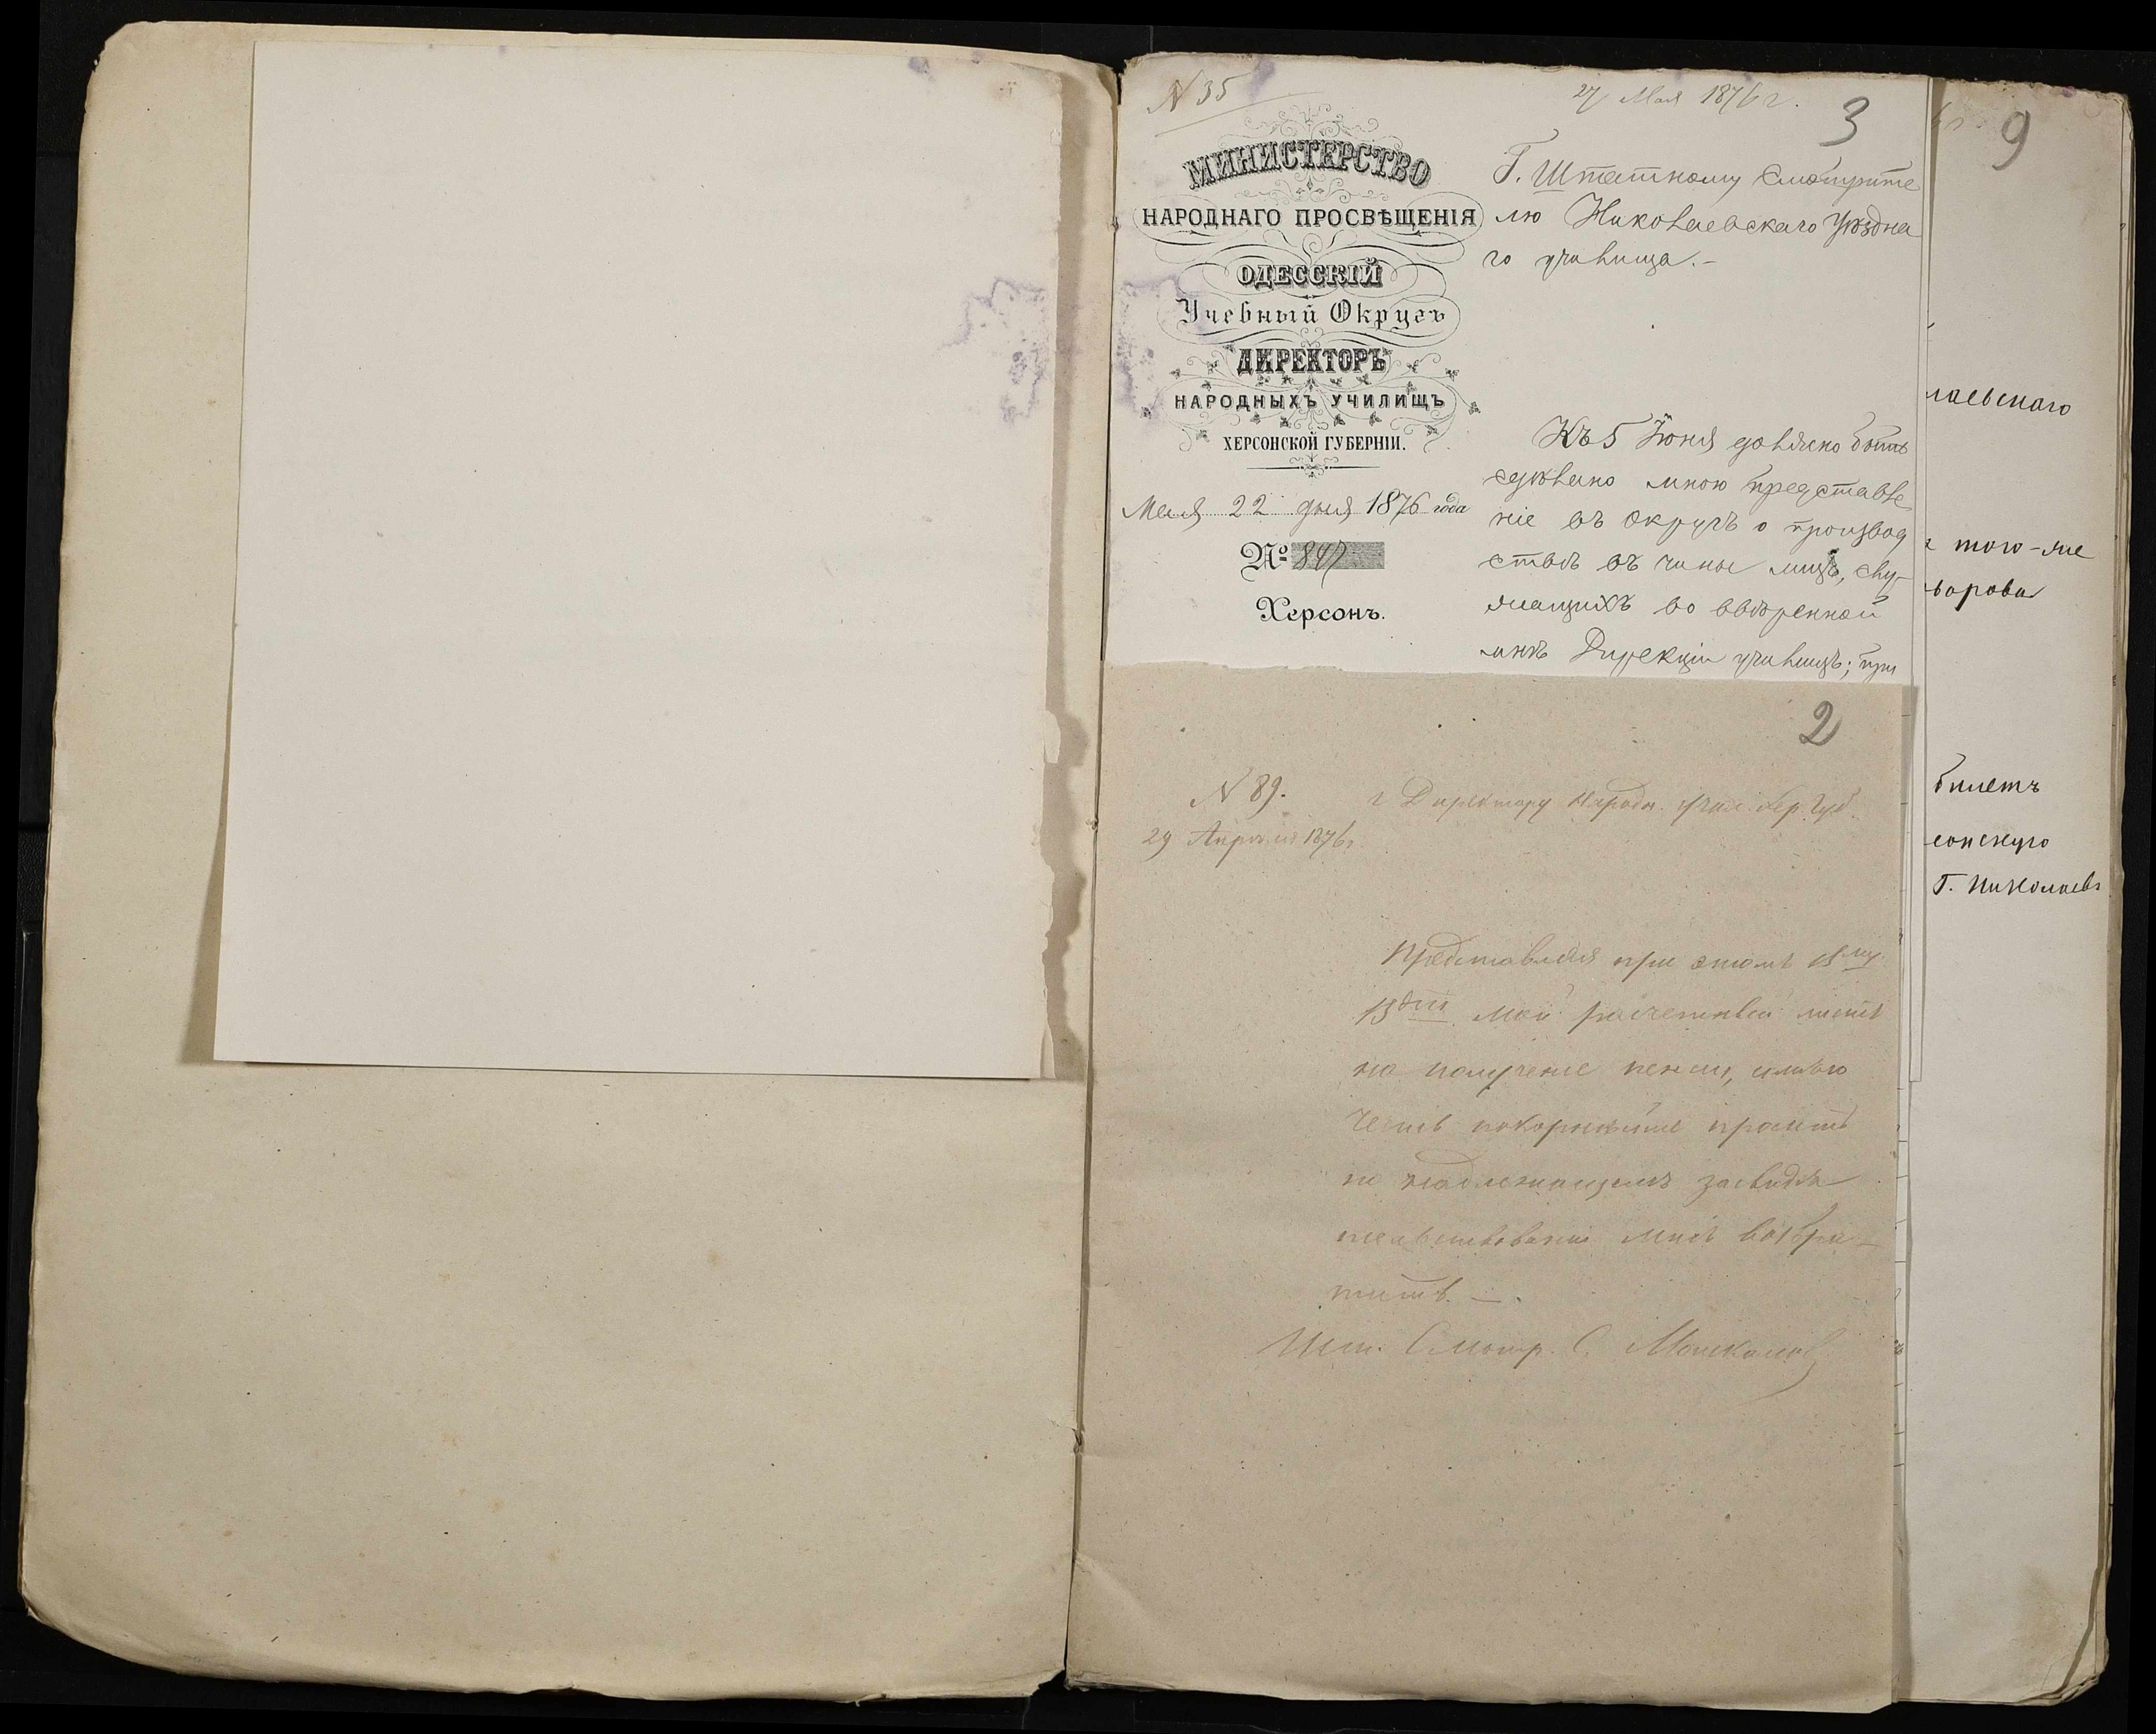 N 35
27 Мая 1876 г.
3
МИНИСТЕРСТВО
НАРОДНАГО ПРОСВѢЩЕНІЯ
ОДЕССКІЙ
Учебный Округъ
ДИРЕКТОРЪ
НАРОДНЫХЪ УЧИЛИЩЪ
ХЕРСОНСКОЙ ГУБЕРНІИ.
Мая 22 дня 1876 года
№ 847
Херсонъ.
Г. Штатному Смотрите
лю Николаевскаго Уѣздна
го училища.-
Къ 5 Іюня должно быть
сдѣлано мною представле
ніе въ Округъ о производ
ствѣ въ чины лицъ, слу-
жащихъ во ввѣренной
мнѣ Дирекціи училищъ; при
2
N 89.
29 Апрѣля 1876 г.
г Директору Народн. учил. Хер. Губ.
Представляя при этомъ
мой расчетный листъ
на полученіе пенсіи, имѣю
честь покорнѣйше просить
по надлежащемъ засвидѣ
тельствованіи мнѣ возвра-
тить. —.
Шт. Смотр. С.
9
лаевскаго
того-же
варова
билетъ
сонскую
Г. Николаевъ